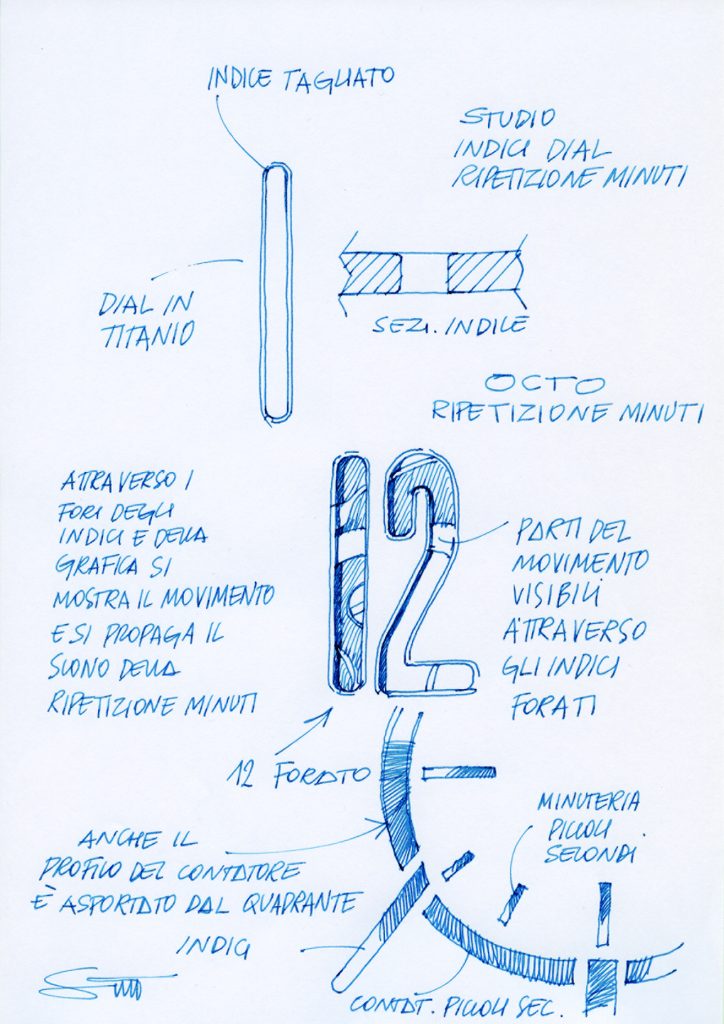 INDICE TAGLIATO
STUDIO
INDICI DIAL
RIPETIZIONE MINUTI
DIAL IN
TITANIO
SEZ. INDICE
OCTO
RIPETIZIONE MINUTI
ATTRAVERSO I
FORI DEGLI
INDICI E DELLA
GRAFICA SI
MOSTRA IL MOVIMENTO
E SI PROPAGA IL
SUONO DELLA
RIPETIZIONE MINUTI
12
PARTI DEL
MOVIMENTO
VISIBILI
ATTRAVERSO
GLI INDICI
FORATI
12 FORATO
MINUTERIA
PICCOLI
SECONDI.
ANCHE IL
PROFILO DEL CONTATORE
È ASPORTATO DAL QUADRANTE
INDICI
CONTAT. PICCOLI SEC.